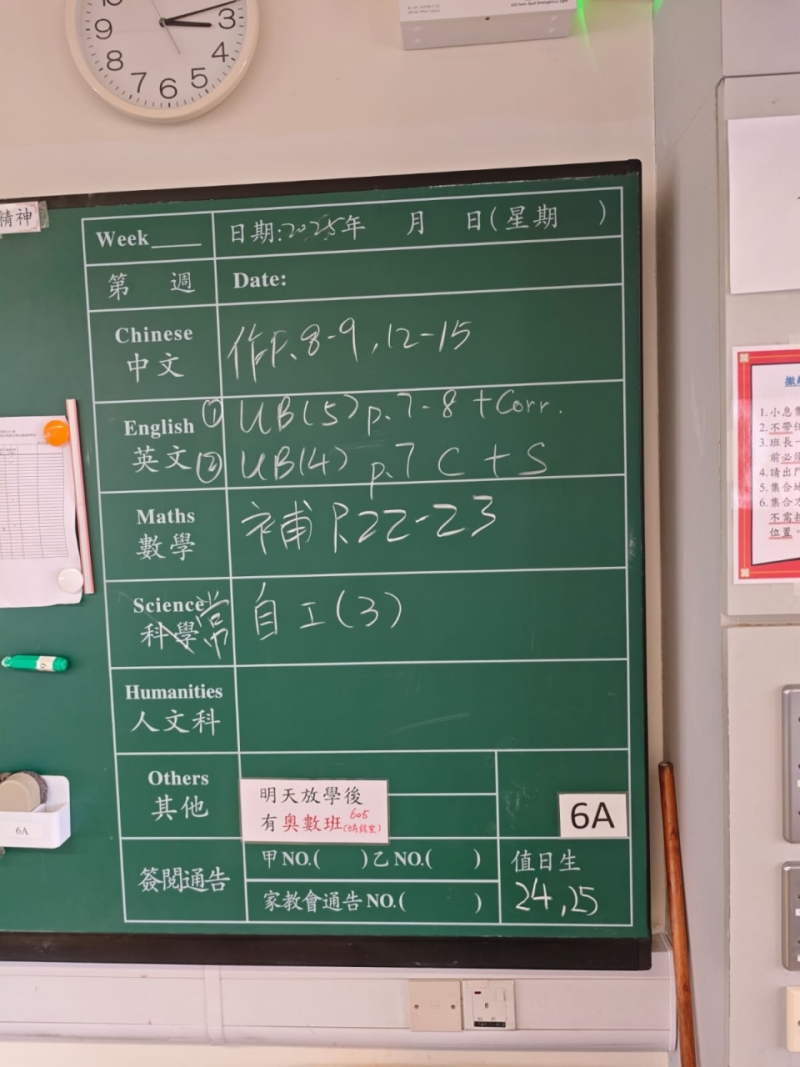 10
9
8
7
6
5
4
3
精神
Week____
日期:2025年 月 日(星期 )
第 週
Date:
Chinese
中文
作P.8-9,12-15
English
英文
① UB(5) p.7-8 + Corr.
② UB(4) p.7 C + S
Maths
數學
補P.22-23
Science
科學 常
自工(3)
Humanities
人文科
Others
其他
明天放學後
有奧數班 605
6A
簽閱通告
甲NO.( )乙NO.( )
家教會通告NO.( )
值日生
24,25
6A
1.小息
2.不帶
3.班長一
前必須
4.請出門
5.集合地
6.集合
不需
位置